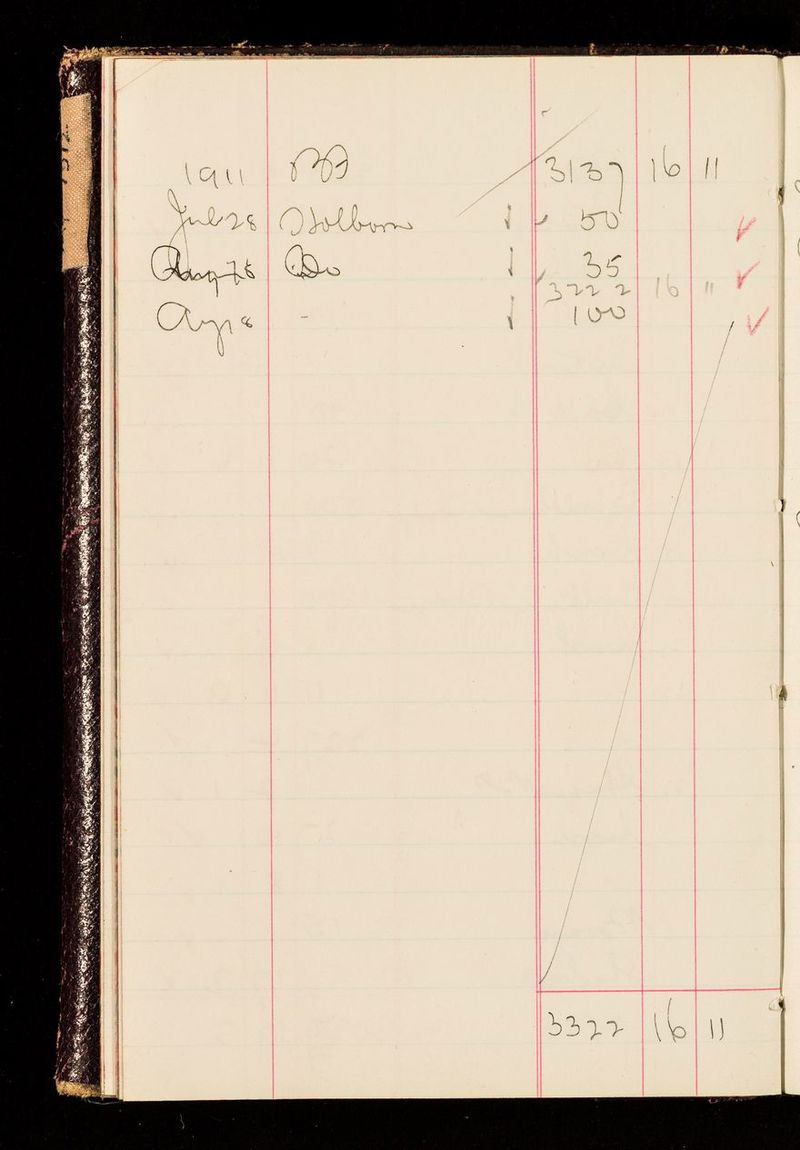 1911 BF 3137 16 11
Jul 28 Holborn 50
Aug 8 Do 35
3222 16 11
Aug 8 - 100
3322 16 11